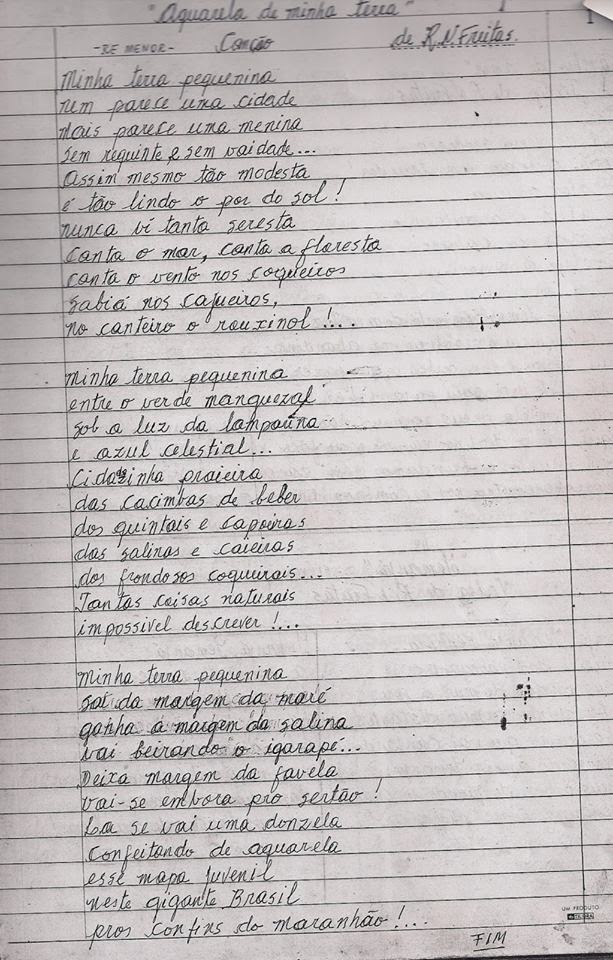 "Aquarela de minha terra"
1
-RE MENOR- Canção de R.N Freitas.
Minha terra pequenina
nem parece uma cidade
mais parece uma menina
sem requinte e sem vaidade...
Assim mesmo tão modesta
é tão lindo o por do sol!
nunca vi tanta seresta
Canta o mar, canta a floresta
canta o vento nos coqueiros
sabiá nos cajueiros,
no canteiro o rouxinol!...
Minha terra pequenina
entre o verde manguezal
sob a luz da lamparina
e azul celestial...
Cidadinha praieira
das cacimbas de beber
dos quintais e capoeiras
das salinas e caieiras
dos frondosos coqueirais...
Tantas coisas naturais
impossível descrever!...
Minha terra pequenina
sai da margem da maré
ganha a margem da salina
vai beirando o igarapé...
Deixa margem da favela
vai-se embora pro sertão!
La se vai uma donzela
Confeitando de aquarela
esse mapa juvenil
neste gigante Brasil
pros confins do maranhão!...
FIM
UM PRODUTO